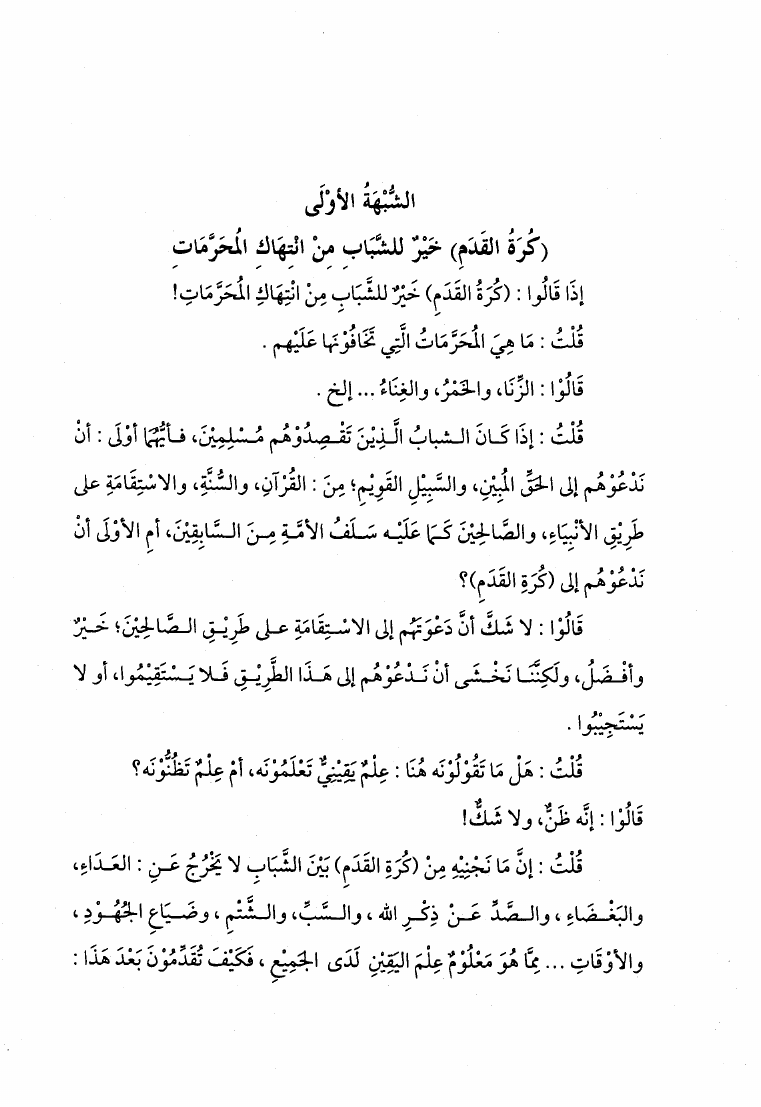 الشُّبْهَةُ الأوْلَى
(كُرَةُ القَدَمِ) خَيْرٌ للشَّبَابِ مِنْ انْتِهَاكِ المُحَرَّمَاتِ
إذَا قَالُوا : (كُرَةُ القَدَمِ) خَيْرٌ للشَّبَابِ مِنْ انْتِهَاكِ المُحَرَّمَاتِ!
قُلْتُ : مَا هِيَ المُحَرَّمَاتُ الَّتِي تَخَافُوْنَها عَلَيْهم .
قَالُوْا : الزِّنَا، والخَمْرُ، والغِنَاءُ ... إلخ .
قُلْتُ : إذَا كَـانَ الـشبابُ الَّـذِيْنَ تَقْـصِدُوْهُم مُـسْلِمِيْنَ، فـأيُّهُمَا أوْلَى : أنْ
نَدْعُوْهُم إلى الحَقِّ المُبِيْنِ، والسَّبِيْلِ القَوِيْمِ؛ مِنَ : القُرْآنِ، والسُّنَّةِ، والاسْتِقَامَةِ على
طَرِيْقِ الأنْبِيَاءِ، والصَّالِحِيْنَ كَـمَا عَلَيْـه سَـلَفُ الأمَّـةِ مِـنَ الـسَّابِقِيْنَ، أمِ الأوْلَى أنْ
نَدْعُوْهُم إلى (كُرَةِ القَدَمِ)؟
قَالُوْا : لا شَكَّ أنَّ دَعْوَتَهُم إلى الاسْـتِقَامَةِ عـلى طَرِيْـقِ الـصَّالِحِيْنَ؛ خَـيْرٌ
وأفْـضَلُ، ولَكِنَّنَـا نَخْـشَى أنْ نَـدْعُوْهُم إلى هَـذَا الطَّرِيْـقِ فَـلا يَـسْتَقِيْمُوا، أو لا
يَسْتَجِيْبُوا .
قُلْتُ : هَلْ مَا تَقُوْلُوْنَه هُنَا : عِلْمٌ يَقِيْنِيٌّ تَعْلَمُوْنَه، أمْ عِلْمٌ تَظُنُّوْنَه؟
قَالُوْا : إنَّه ظَنٌّ، ولا شَكٌّ!
قُلْتُ : إنَّ مَا نَجْنِيْهِ مِنْ (كُرَةِ القَدَمِ) بَيْنَ الشَّبَابِ لا يَخْرُجُ عَـنِ : العَـدَاءِ،
والبَغْـضَاءِ ، والـصَّدِّ عَـنْ ذِكْـرِ الله ، والـسَّبِّ، والـشَّتْمِ ، وضَـيَاعِ الجُهُـوْدِ ،
والأوْقَاتِ ... مِمَّا هُوَ مَعْلُوْمٌ عِلْمَ اليَقِيْنِ لَدَى الجَمِيْعِ ، فَكَيْفَ تُقَدِّمُوْنَ بَعْدَ هَذَا :